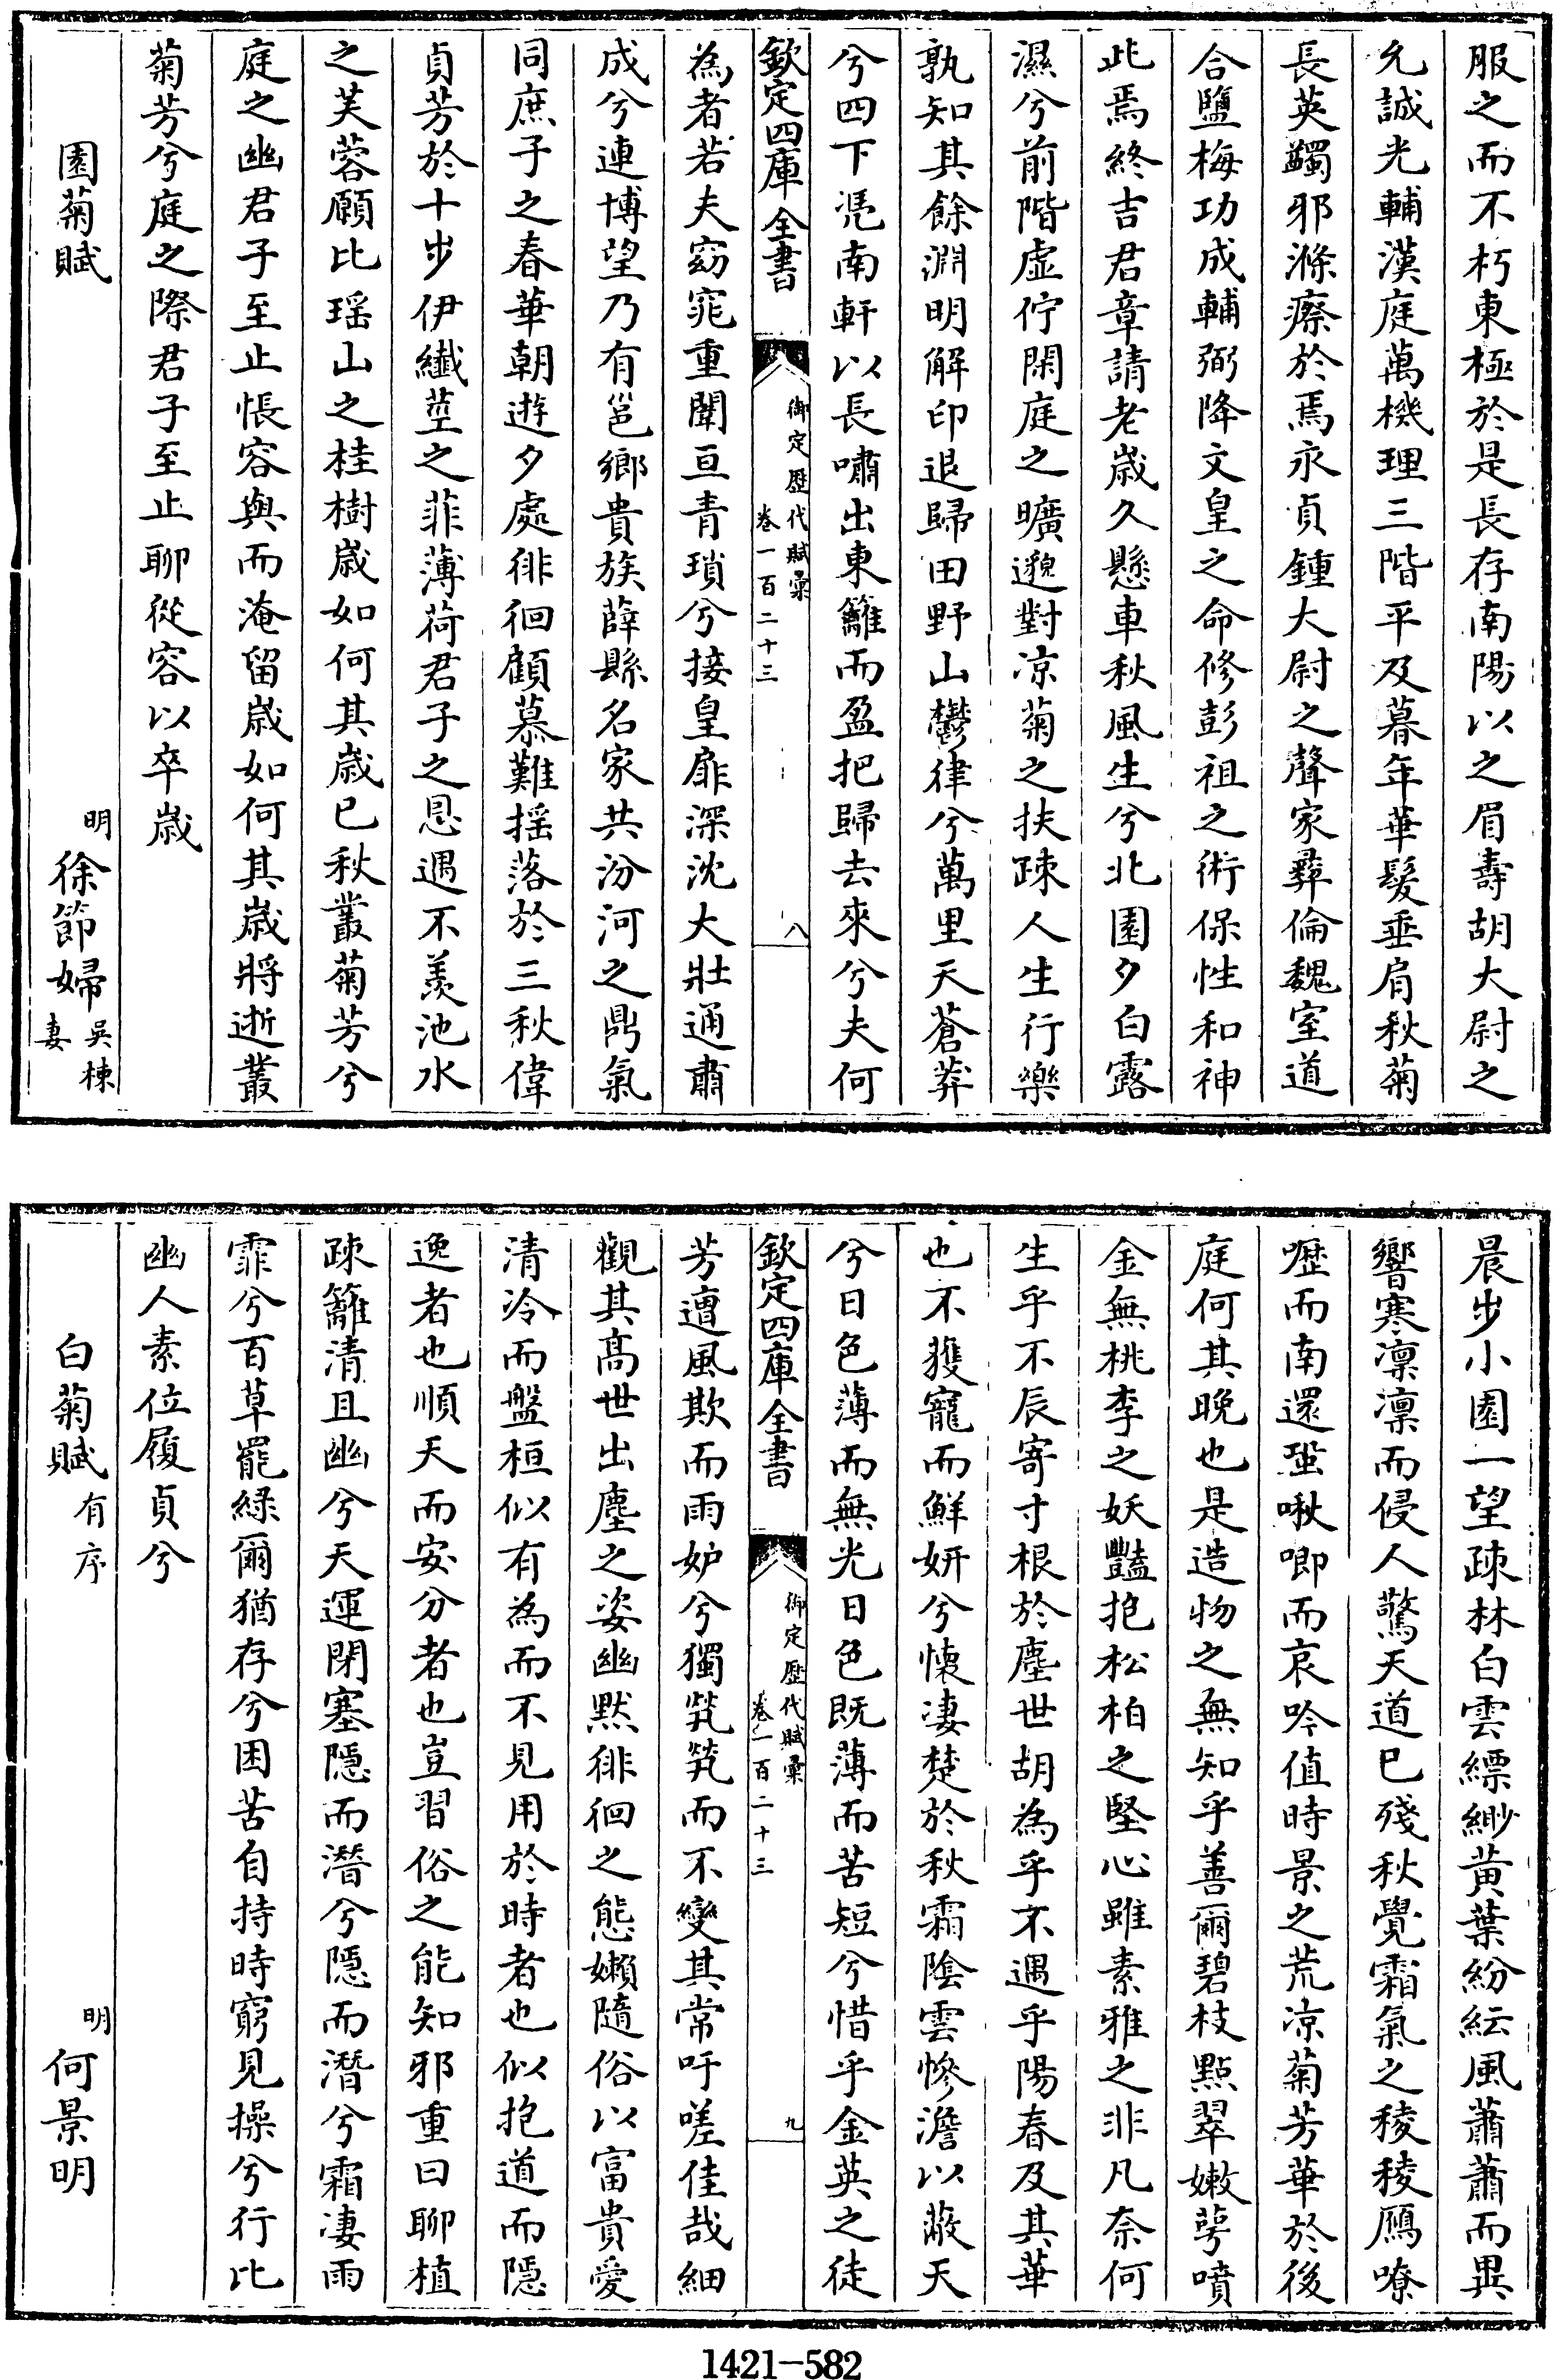 服之而不朽東極於是長存南陽以之眉壽胡大尉之
允誠光輔漢庭萬機理三階平及暮年華髮垂肩秋菊
長英蠲邪滌瘵於焉永貞鍾大尉之聲家彞倫魏室道
合鹽梅功成輔弼降文皇之命修彭祖之術保性和神
此焉終吉君章請老歲久懸車秋風生兮北園夕白露
濕兮前階虛佇閑庭之曠邈對凉菊之扶疎人生行樂
孰知其餘淵明解印退歸田野山鬱律兮萬里天蒼莽
兮四下憑南軒以長嘯出東籬而盈把歸去來兮夫何
欽定四庫全書
御定歷代賦彙
卷一百二十三
八
為者若夫窈窕重闈亘青瑣兮接皇扉深沈大壯通肅
成兮連博望乃有邕鄉貴族薛縣名家共汾河之鼎氣
同庶子之春華朝遊夕處徘徊顧慕難揺落於三秋偉
貞芳於十步伊纖莖之菲薄荷君子之恩遇不羨池水
之芙蓉願比瑶山之桂樹歲如何其歲已秋叢菊芳兮
庭之幽君子至止悵容與而淹留歲如何其歲將逝叢
菊芳兮庭之際君子至止聊從容以卒歲
園菊賦
明徐節婦吳棟妻
晨步小園一望疎林白雲縹緲黃葉紛紜風蕭蕭而異
響寒凛凛而侵人驚天道已殘秋覺霜氣之稜稜鴈嘹
嚦而南還蛩啾唧而哀吟值時景之荒凉菊芳華於後
庭何其晚也是造物之無知乎善爾碧枝點翠嫩萼噴
金無桃李之妖豔抱松柏之堅心雖素雅之非凡奈何
生乎不辰寄寸根於塵世胡為乎不遇乎陽春及其華
也不獲寵而鮮妍兮懷凄楚於秋霜陰雲慘澹以蔽天
兮日色薄而無光日色既薄而苦短兮惜乎金英之徒
欽定四庫全書
御定歷代賦彙
卷一百二十三
九
芳遭風欺而雨妒兮獨煢煢而不變其常吁嗟佳哉細
觀其高世出塵之姿幽默徘徊之態嬾隨俗以富貴愛
清冷而盤桓似有為而不見用於時者也似抱道而隱
逸者也順天而安分者也豈習俗之能知邪重曰聊植
疎籬清且幽兮天運閉塞隱而潛兮隱而潛兮霜凄雨
霏兮百草罷綠爾猶存兮困苦自持時窮見操兮行比
幽人素位履貞兮
白菊賦有序
明何景明
1421-582